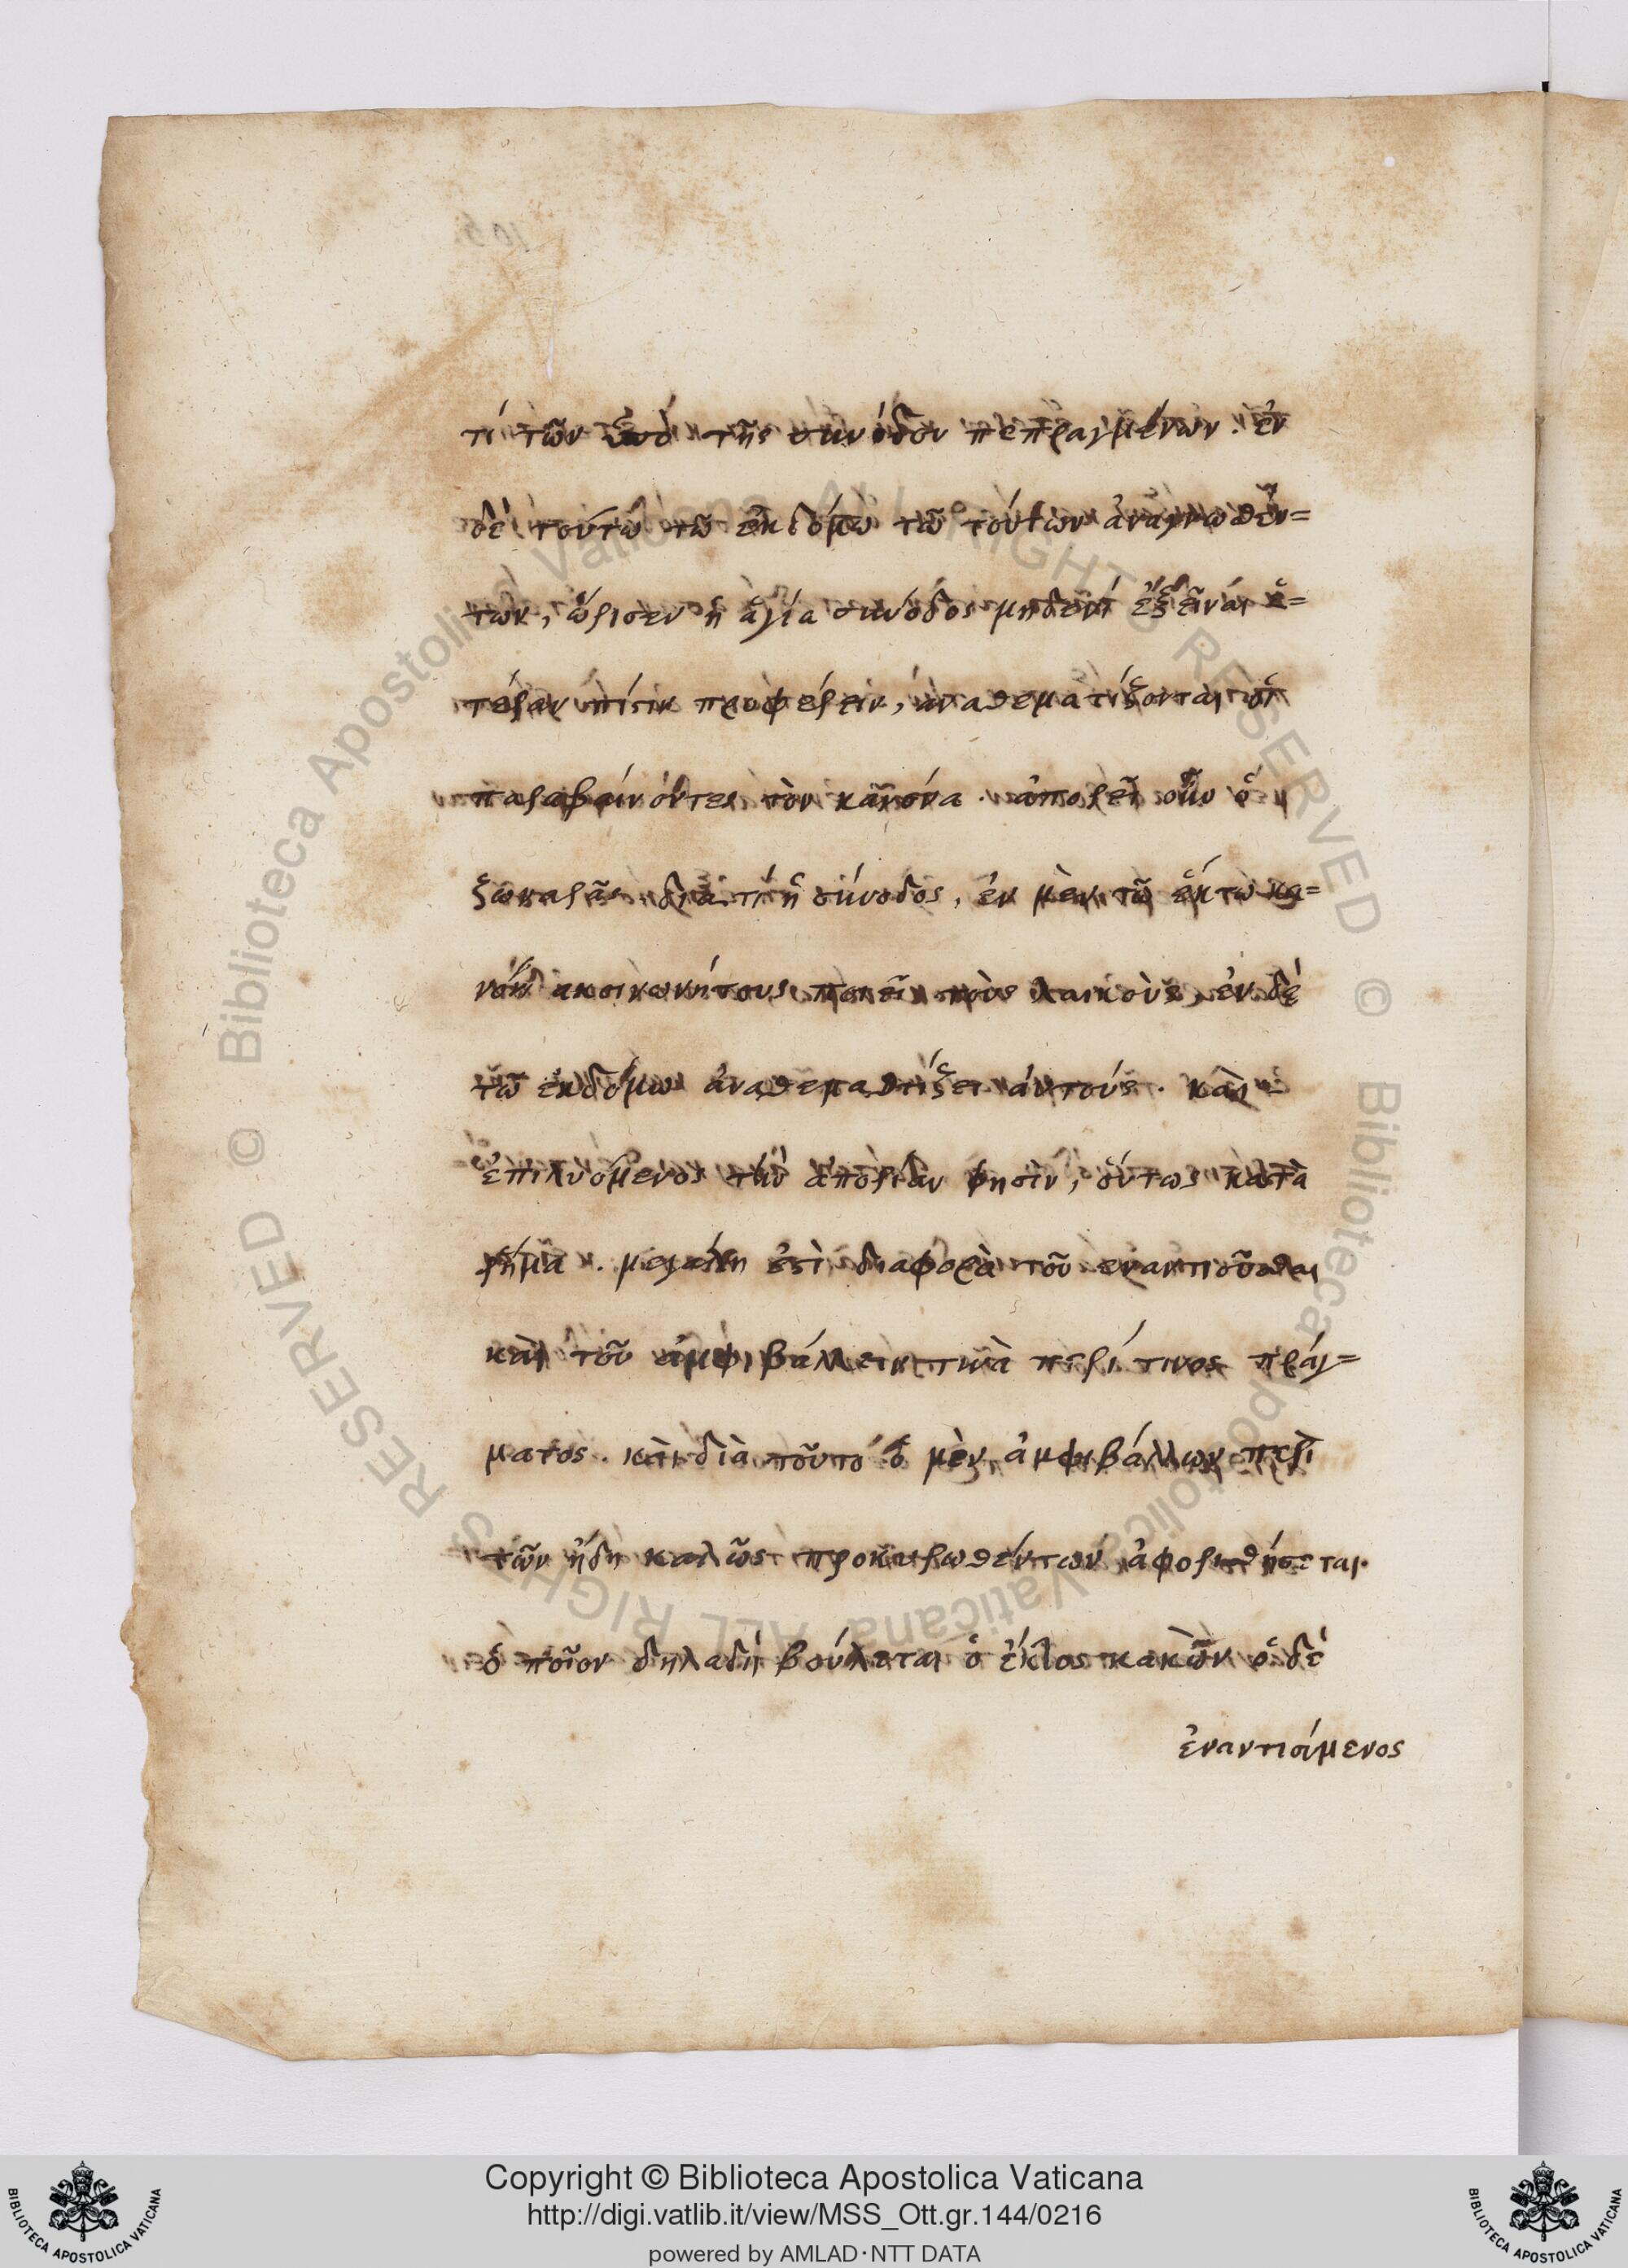 τί τῶν ὑπό τῆς συνόδου πεπραγμένων. ἐν
δὲ τούτω τῶ ἑβδόμω τῶ τούτων ἀναγνωσθέν=
των, ὥρισεν ἡ ἁγία σύνοδος μηδενί ἐξεῖναι ἑ=
τέραν πίστιν προφέρειν, ἀναθεματίζονται οἱ
παραβαίνόντες τὸν κανόνα. ἀπορεῖ οὖν ὁ
ζωναρᾶς διατί ἡ σύνοδος, ἐν μὲν τῶ ἕκτω κα=
νόνι ἀκοινωνήτους ποιεῖ τοὺς λαικοὺς, ἐν δέ
τῶ ἑβδόμω ἀναθεματίζει αὐτούς. καὶ
ἐπιλυόμενος τήν ἀπορίαν φησίν, οὕτως κατὰ
ῥῆμα. μεγάλη ἐστὶ διαφορὰ τοῦ εναντιοῦσθαι
καὶ τοῦ ἀμφιβάλλειν τινὰ περί τινος πράγ=
ματος. καὶ διὰ τοῦτο ὁ μὲν ἀμφιβάλλων περὶ
τῶν ἤδη καλῶς προκυρωθέντων ἀφορισθήσεται.
ὁποῖον δηλαδή βούλεται ὁ ἐκτος κακῶν ὁ δέ
ἐναντιούμενος
Copyright © Biblioteca Apostolica Vaticana
http://digi.vatlib.it/view/MSS_Ott.gr.144/0216
powered by AMLAD·NTT DATA
BIBLIOTECA APOSTOLICA VATICANA
BIBLIOTECA APOSTOLICA VATICANA
© Biblioteca Apostolica Vaticana ALL RIGHTS RESERVED © Biblioteca Apostolica Vaticana ALL RIGHTS RESERVED